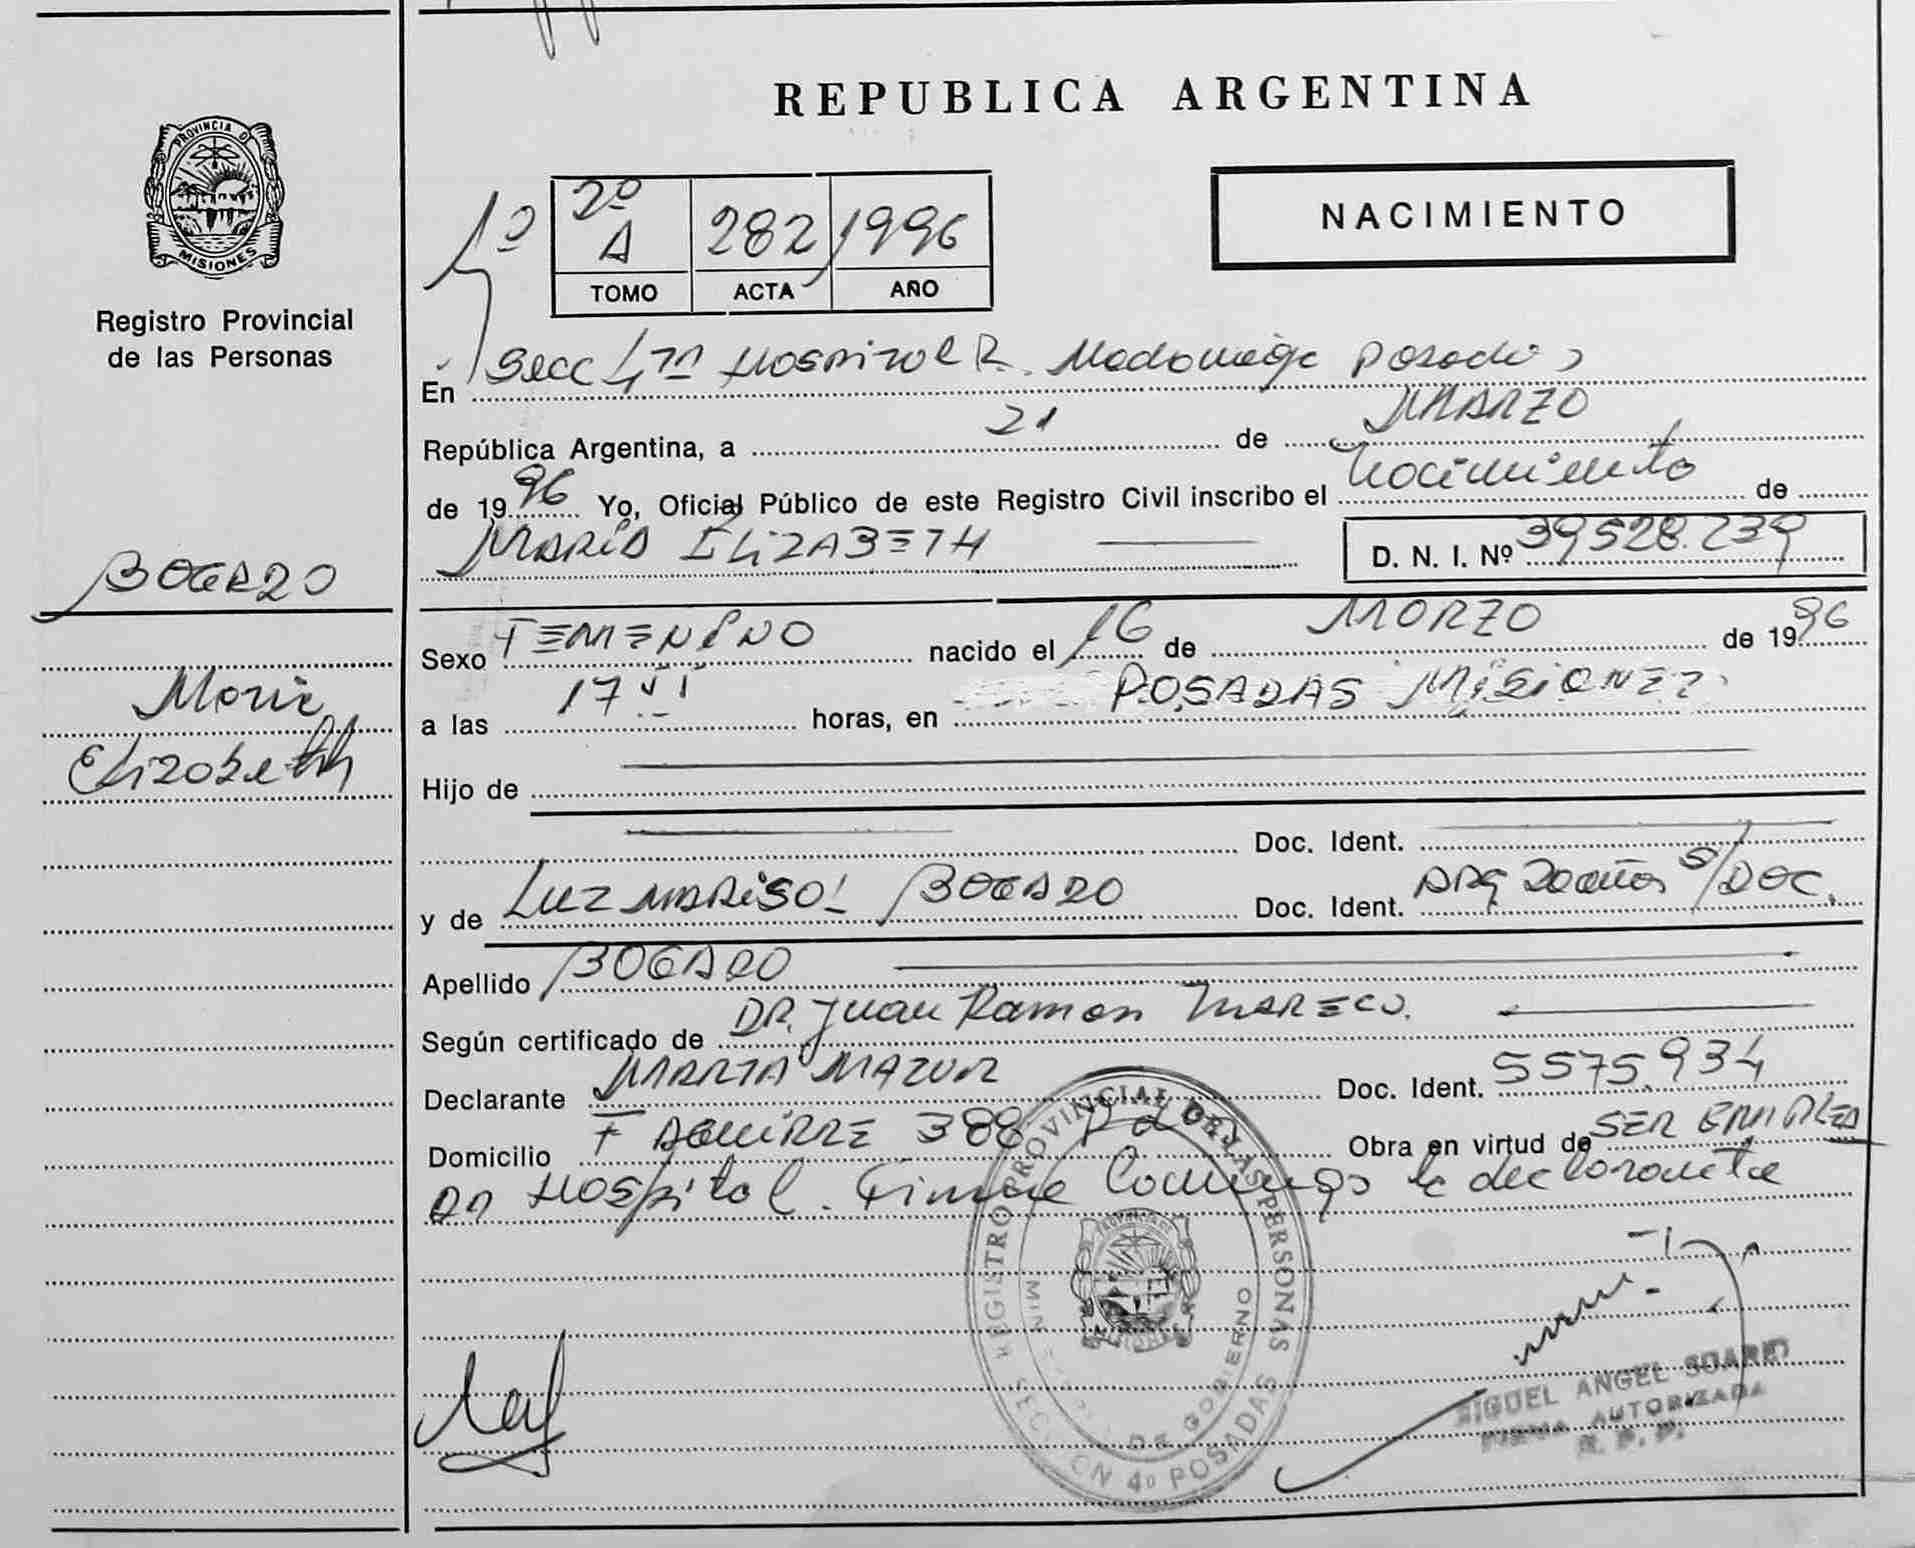 REPUBLICA ARGENTINA
PROVINCIA DE
MISIONES
Registro Provincial
de las Personas
NACIMIENTO
1º 2º A 282 1996
TOMO ACTA AÑO
En Secc 4ta Hospital R. Madariaga Posadas
República Argentina, a 21 de MARZO
de 1996 Yo, Oficial Público de este Registro Civil inscribo el nacimiento de
MARIA ELIZABETH D. N. I. Nº 39528.239
BOGADO
Maria
Elizabeth
Sexo FEMENINO nacido el 16 de MARZO de 1996
a las 17 horas, en POSADAS MISIONES
Hijo de
Doc. Ident.
y de LUZ MARISOL BOGADO Doc. Ident. ARG 20 años s/DOC.
Apellido BOGADO
Según certificado de DR. Juan Ramon MARECO.
Declarante MARTA MAZUR Doc. Ident. 5575.934
Domicilio F AGUIRRE 388 Obra en virtud de SER EMPLEADA
Hospital. Firma Conmigo la declarante
REGISTRO PROVINCIAL DE LAS PERSONAS
DE GOBIERNO
SECCION 4º POSADAS
MIGUEL ANGEL SUAREZ
FIRMA AUTORIZADA
R. P. P.